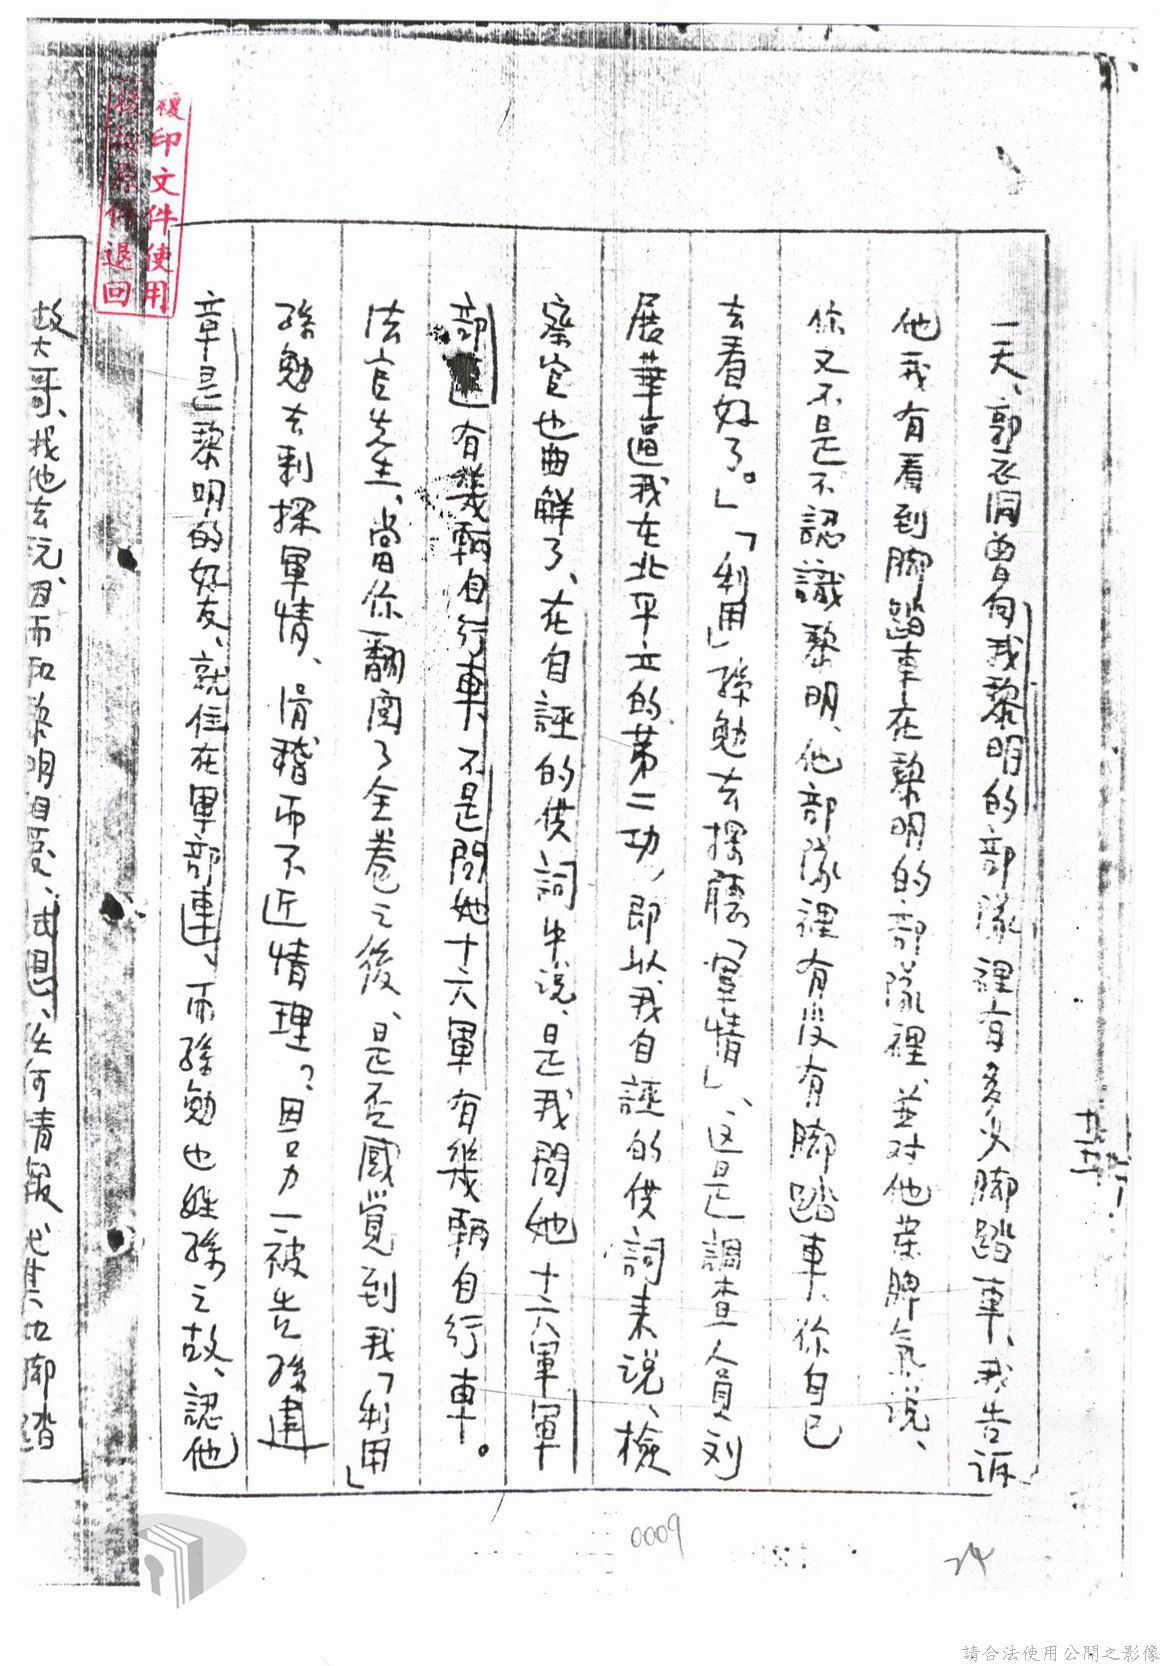 一天、郭衣洞曾向我黎明的部隊裡有多少腳踏車、我告訴
他我有看到腳踏車在黎明的部隊裡、並对他業脾氣说、
你又不是不認識黎明、他部隊裡有沒有腳踏車、你自己
去看好了。」「利用」孫勉去探聽「軍情」、这是調查人員刘
展華逼我在北平立的第二功、即以我自誣的供詞来说、檢
察官也曲解了、在自誣的供詞中说、是我問她十六軍軍
部 有幾輛自行車、不是問她十六軍有幾輛自行車。
法官先生、當你翻閱了全卷之後、是否感覺到我「利用」
孫勉去刺探軍情、滑稽而不近情理？、因另一被告孫建
章是黎明的好友、就住在軍部連、而孫勉也姓孫之故、認他
故大哥、找他去玩、因而和黎明相愛、試想、任何情報 尤其 腳踏
複印文件使用
後按原件退回
0009
24
請合法使用公開之影像